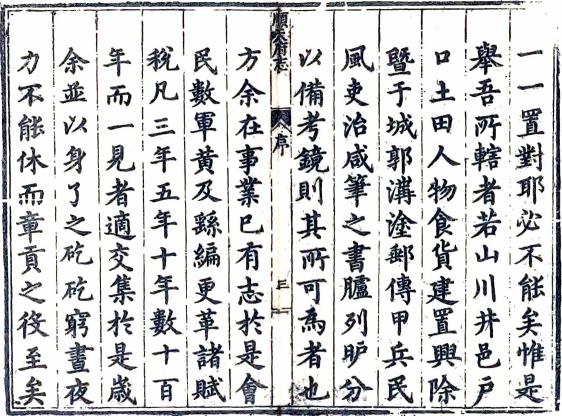 一一置對耶必不能矣惟是
舉吾所轄者若山川井邑戶
口土田人物食貨建置興除
暨于城郭溝塗郵傳甲兵民
風吏治咸筆之書臚列昈分
以備考鏡則其所可為者也
順天府志
序
三
方余在事業已有志於是會
民數軍黃及繇編更革諸賦
稅凡三年五年十年數十百
年而一見者適交集於是歲
余並以身了之矻矻窮晝夜
力不能休而章貢之役至矣